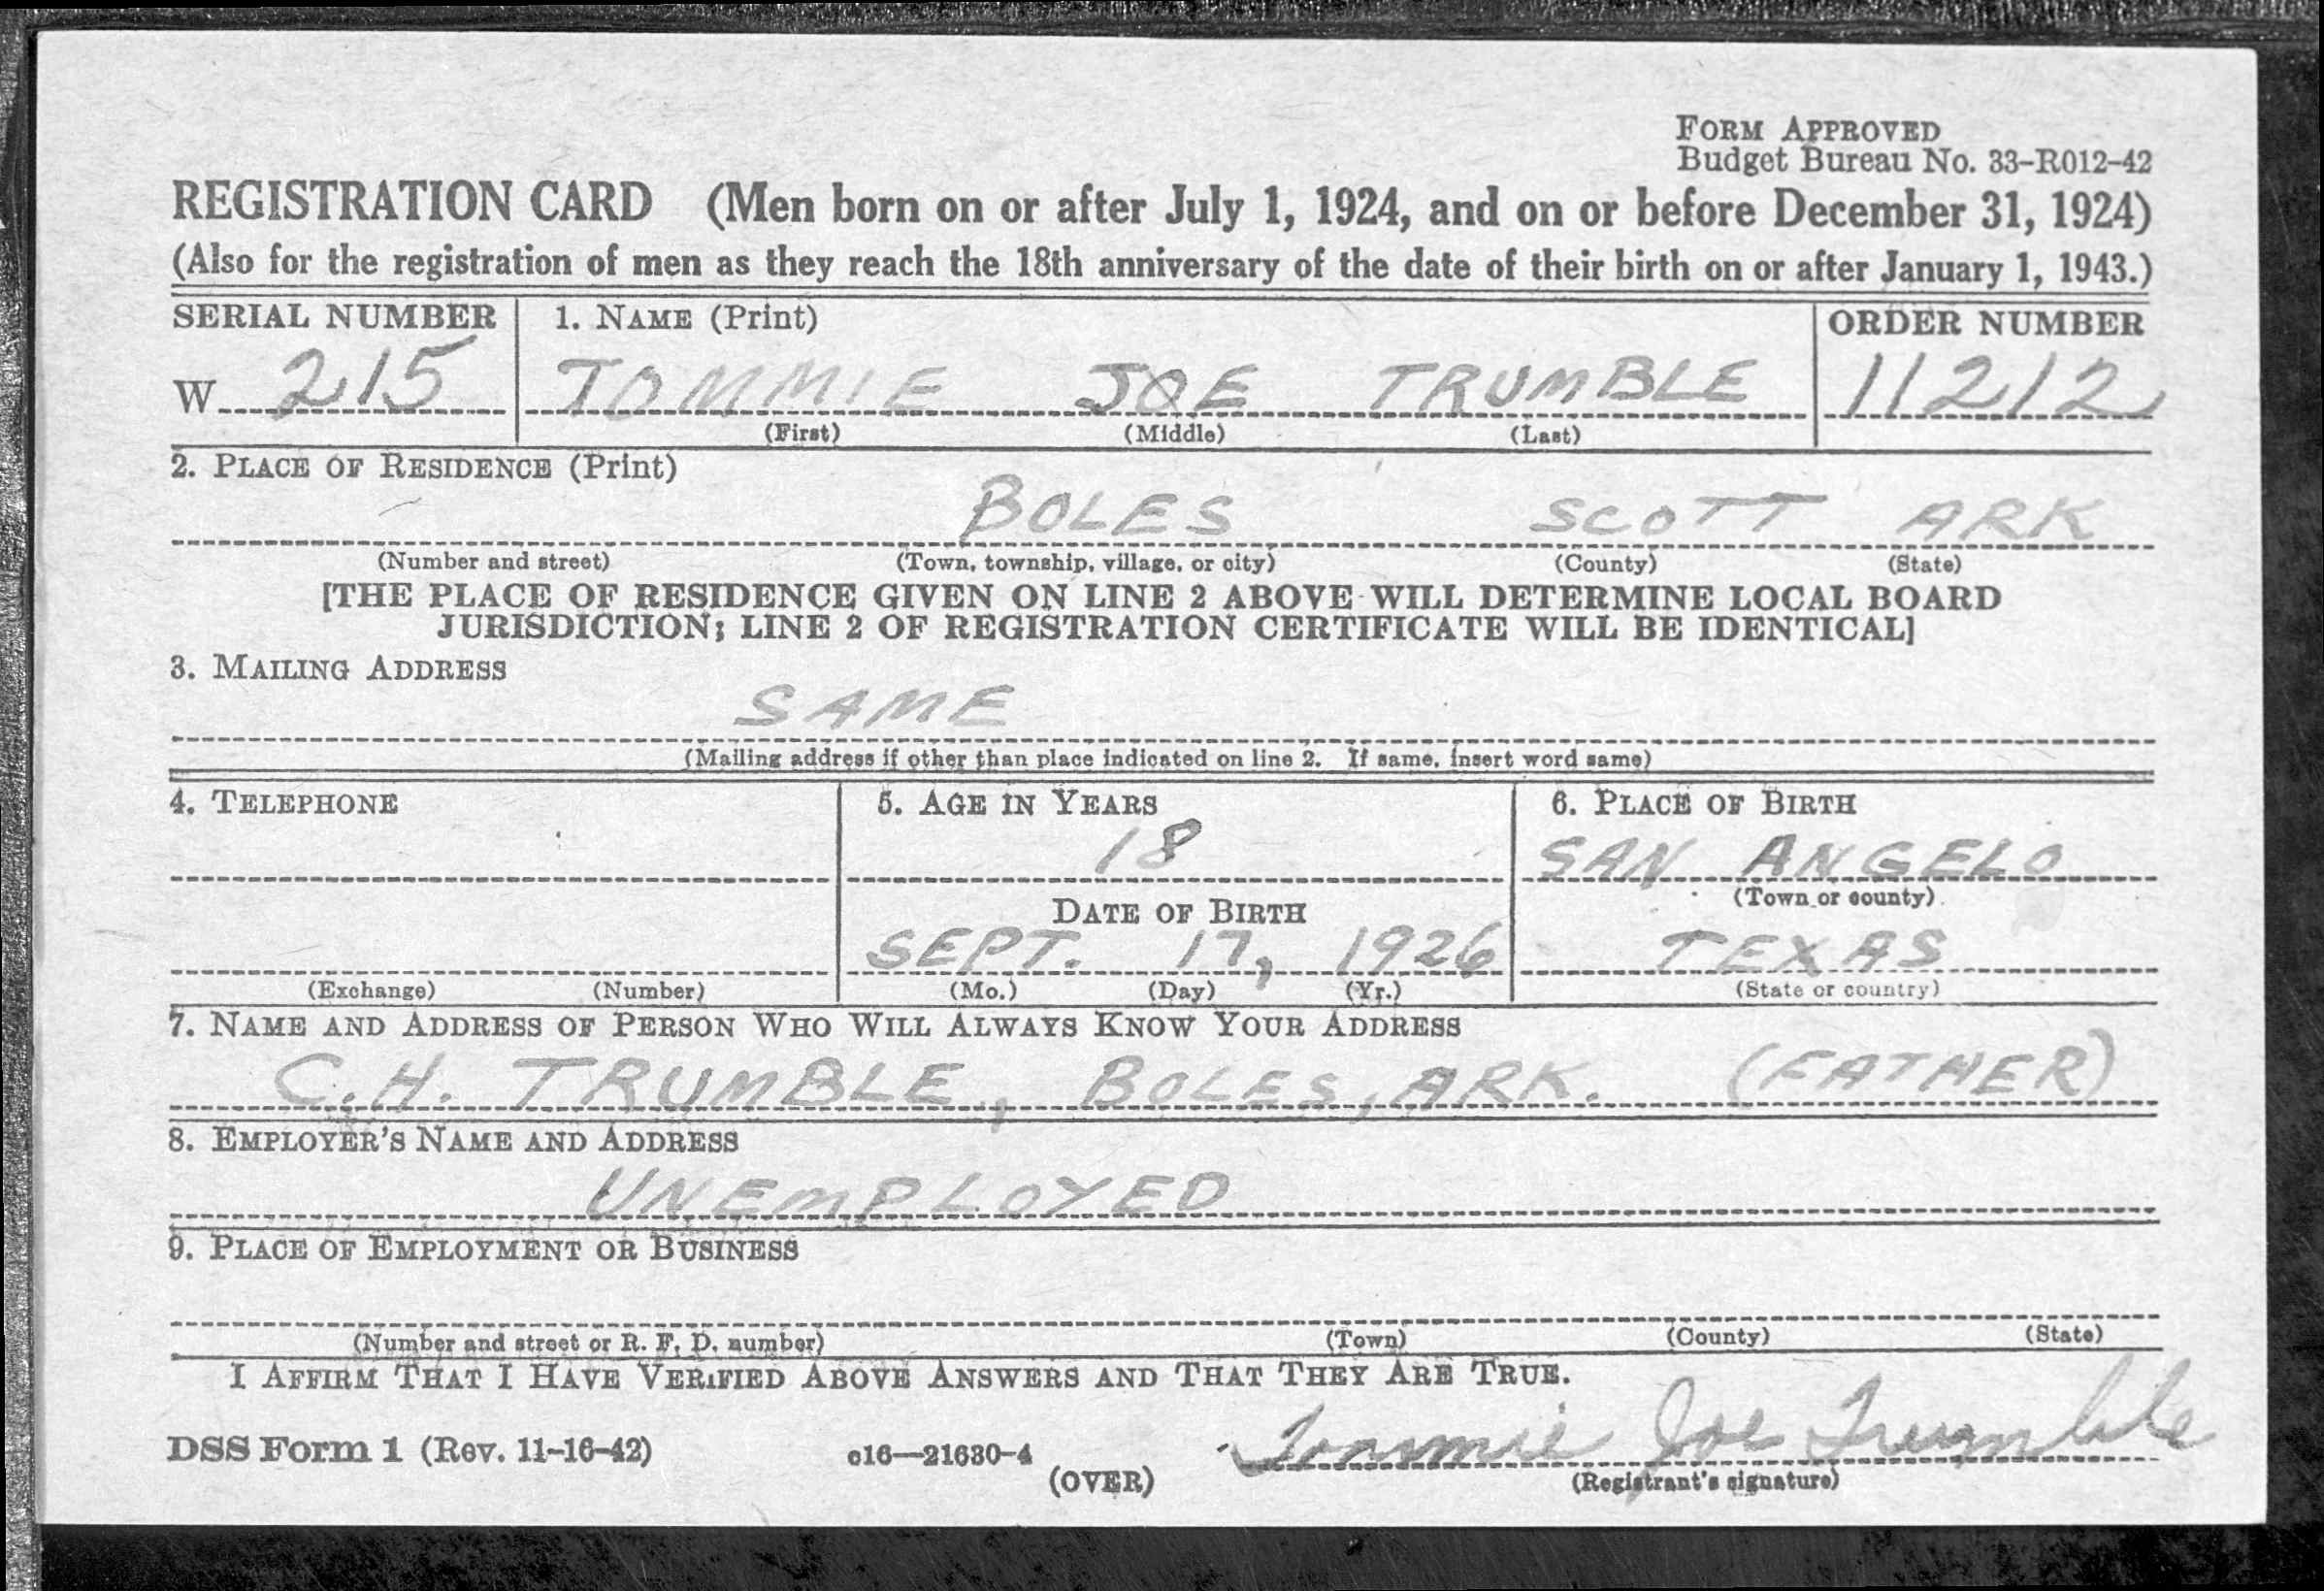 FORM APPROVED
Budget Bureau No. 33-R012-42
REGISTRATION CARD (Men born on or after July 1, 1924, and on or before December 31, 1924)
(Also for the registration of men as they reach the 18th anniversary of the date of their birth on or after January 1, 1943.)
SERIAL NUMBER 1. NAME (Print) ORDER NUMBER
W 215 TOMMIE JOE TRUMBLE 11212
(First) (Middle) (Last)
2. PLACE OF RESIDENCE (Print)
BOLES SCOTT ARK
(Number and street) (Town, township, village, or city) (County) (State)
[THE PLACE OF RESIDENCE GIVEN ON LINE 2 ABOVE WILL DETERMINE LOCAL BOARD
JURISDICTION; LINE 2 OF REGISTRATION CERTIFICATE WILL BE IDENTICAL]
3. MAILING ADDRESS
SAME
(Mailing address if other than place indicated on line 2. If same, insert word same)
4. TELEPHONE 5. AGE IN YEARS 6. PLACE OF BIRTH
18 SAN ANGELO
(Town or county)
DATE OF BIRTH
SEPT. 17, 1926 TEXAS
(Exchange) (Number) (Mo.) (Day) (Yr.) (State or country)
7. NAME AND ADDRESS OF PERSON WHO WILL ALWAYS KNOW YOUR ADDRESS
C.H. TRUMBLE, BOLES, ARK. (FATHER)
8. EMPLOYER'S NAME AND ADDRESS
UNEMPLOYED
9. PLACE OF EMPLOYMENT OR BUSINESS
(Number and street or R. F. D. number) (Town) (County) (State)
I AFFIRM THAT I HAVE VERIFIED ABOVE ANSWERS AND THAT THEY ARE TRUE.
DSS Form 1 (Rev. 11-16-42) c16—21630-4 Tommie Joe Trumble
(OVER) (Registrant's signature)